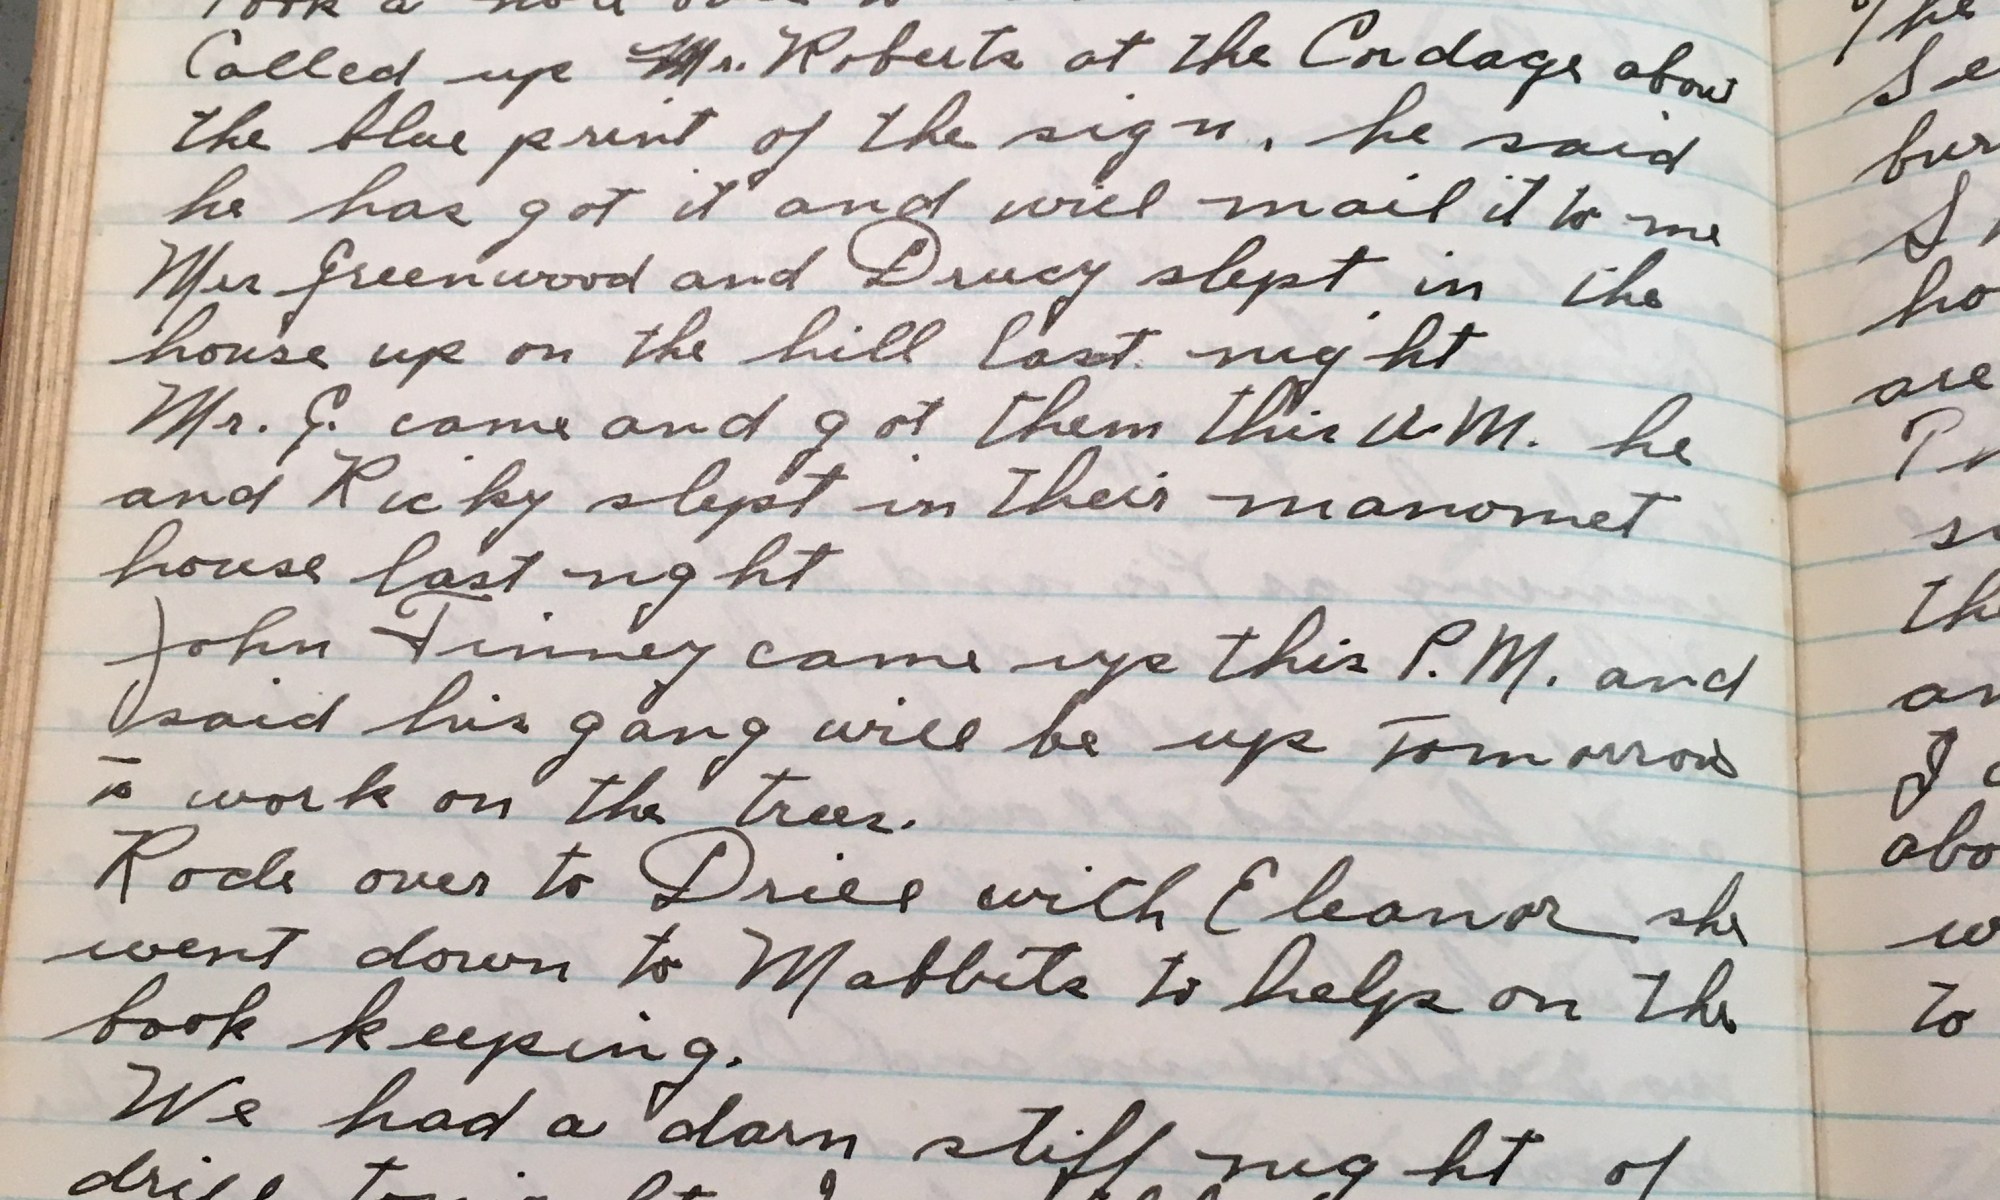 Took a
Called up Mr. Roberts at the Cordage about
the blue print of the sign, he said
he has got it and will mail it to me
Mrs Greenwood and Drucy slept in the
house up on the hill last night
Mr. G. came and got them this A.M. he
and Ricky slept in their manomet
house last night
John Finney came up this P.M. and
said his gang will be up Tomorrow
to work on the trees.
Rode over to Drill with Eleanor she
went down to Mabbits to help on the
book keeping.
We had a darn stiff night of
drill
The
are
the
to